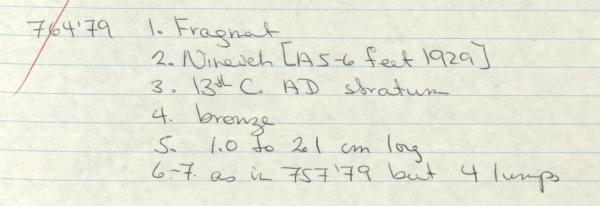 764'79 1. Fragnat
2. Nineveh [A5-6 feet 1929]
3. 13th C. AD stratum
4. bronze
5. 1.0 to 2.1 cm long
6.-7. as in 757'79 but 4 lumps